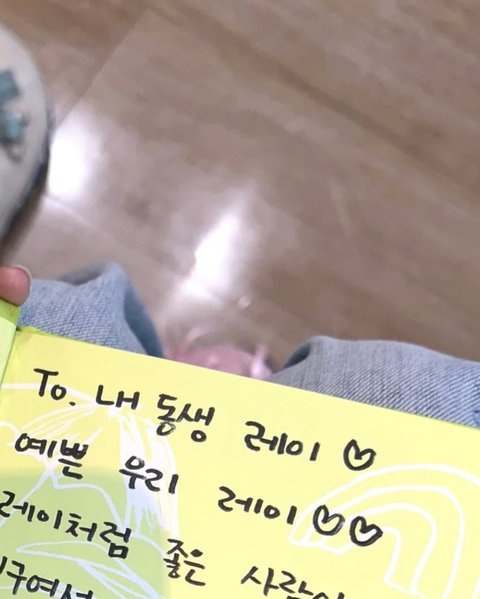 To. 내 동생 레이♡
예쁜 우리 레이♡♡
레이처럼 좋은 사람이